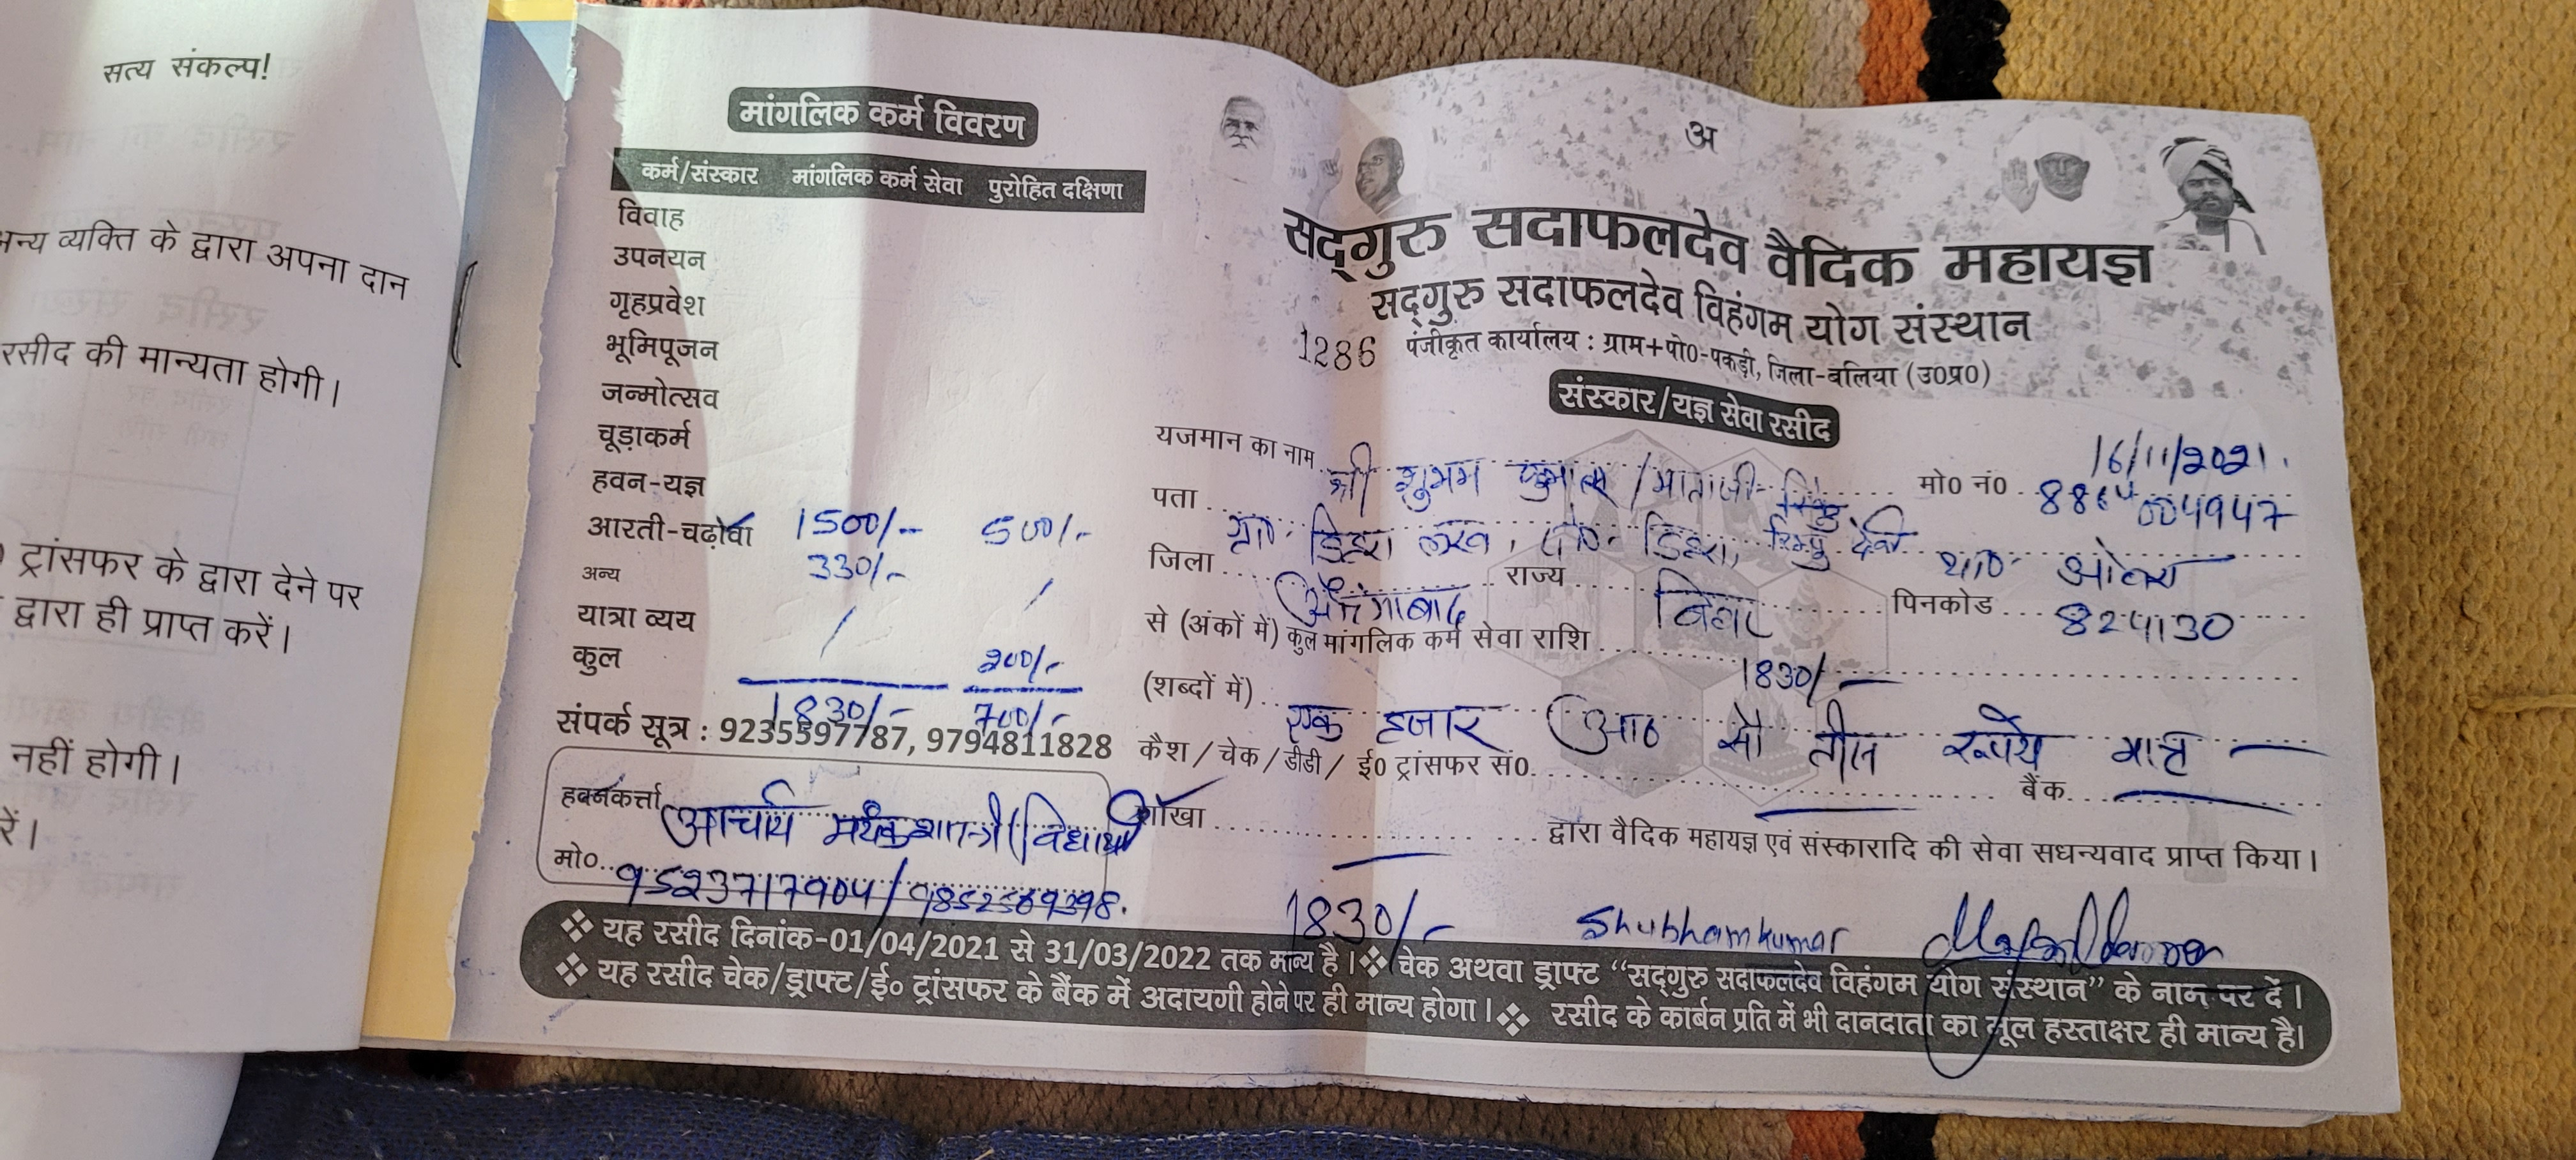 सत्य संकल्प!
अन्य व्यक्ति के द्वारा अपना दान
रसीद की मान्यता होगी।
ट्रांसफर के द्वारा देने पर
द्वारा ही प्राप्त करें।
नहीं होगी।
रें।
मांगलिक कर्म विवरण
कर्म/संस्कार मांगलिक कर्म सेवा पुरोहित दक्षिणा
विवाह
उपनयन
गृहप्रवेश
भूमिपूजन
जन्मोत्सव
चूड़ाकर्म
हवन-यज्ञ
आरती-चढ़ावा 1500/- 500/-
अन्य 330/-
यात्रा व्यय / /
कुल 200/-
1830/- 700/-
संपर्क सूत्र : 9235597787, 9794811828
हवनकर्त्ता आचार्य मयंक शास्त्री (विद्यार्थी
मो०.. 9523717904/9852569398.
अ
सद्गुरु सदाफलदेव वैदिक महायज्ञ
सद्गुरु सदाफलदेव विहंगम योग संस्थान
1286 पंजीकृत कार्यालय : ग्राम+पो0-पकड़ी, जिला-बलिया (उ0प्र0)
संस्कार/यज्ञ सेवा रसीद
16/11/2021.
यजमान का नाम श्री शुभम कुमार /माताजी- मो0 नं0 8864004947
पता ग्रा०- डिहरा लख, पो०- डिहरा, रिम्पु देवी था०- ओबरा
जिला औरंगाबाद राज्य बिहार पिनकोड 824130
से (अंकों में) कुल मांगलिक कर्म सेवा राशि 1830/-
(शब्दों में) एक हजार आठ सौ तीस रूपये मात्र
कैश / चेक / डीडी / ई0 ट्रांसफर सं0. बैंक
शाखा द्वारा वैदिक महायज्ञ एवं संस्कारादि की सेवा सधन्यवाद प्राप्त किया।
1830/- Shubham kumar
❖ यह रसीद दिनांक-01/04/2021 से 31/03/2022 तक मान्य है। ❖ चेक अथवा ड्राफ्ट “सद्गुरु सदाफलदेव विहंगम योग संस्थान” के नाम पर दें।
❖ यह रसीद चेक/ड्राफ्ट/ई० ट्रांसफर के बैंक में अदायगी होने पर ही मान्य होगा। ❖ रसीद के कार्बन प्रति में भी दानदाता का मूल हस्ताक्षर ही मान्य है।